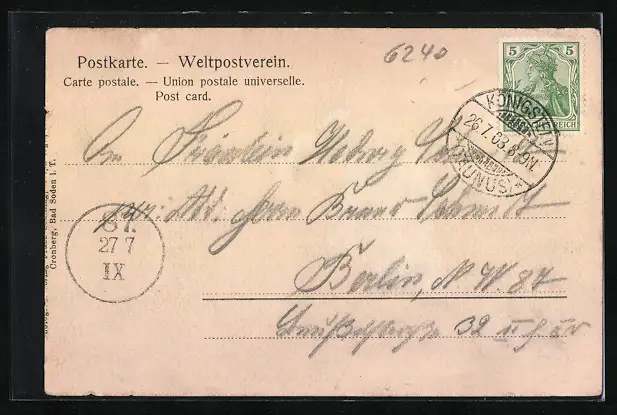 Postkarte. — Weltpostverein.
Carte postale. — Union postale universelle.
Post card.
6240
5 5
REICH
KÖNIGSTEIN
26.7.03.8-9N.
(TAUNUS)
An Fräulein Hedwig
Herrn Bruno Schmidt
Berlin, N.W. 87
32 II
87.
27 7
IX
Cronberg, Bad Soden i. T.